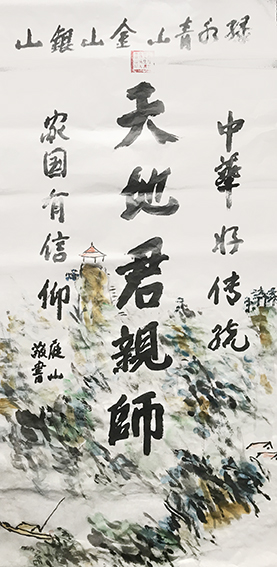 绿水青山金山銀山
中華好传统
天地君親師
家国有信仰
庭山
書